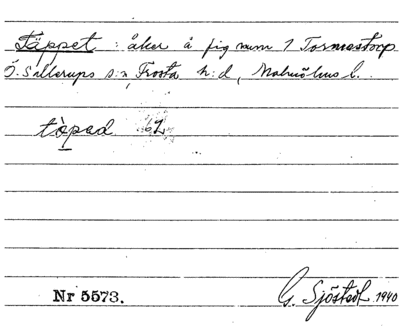 Täppet : åker å fig num 1 Tormestorp
Ö. Sallerups s:n, Frosta h:d, Malmöhus l.
tàpad
Nr 5573.
G. Sjöstedt 1940